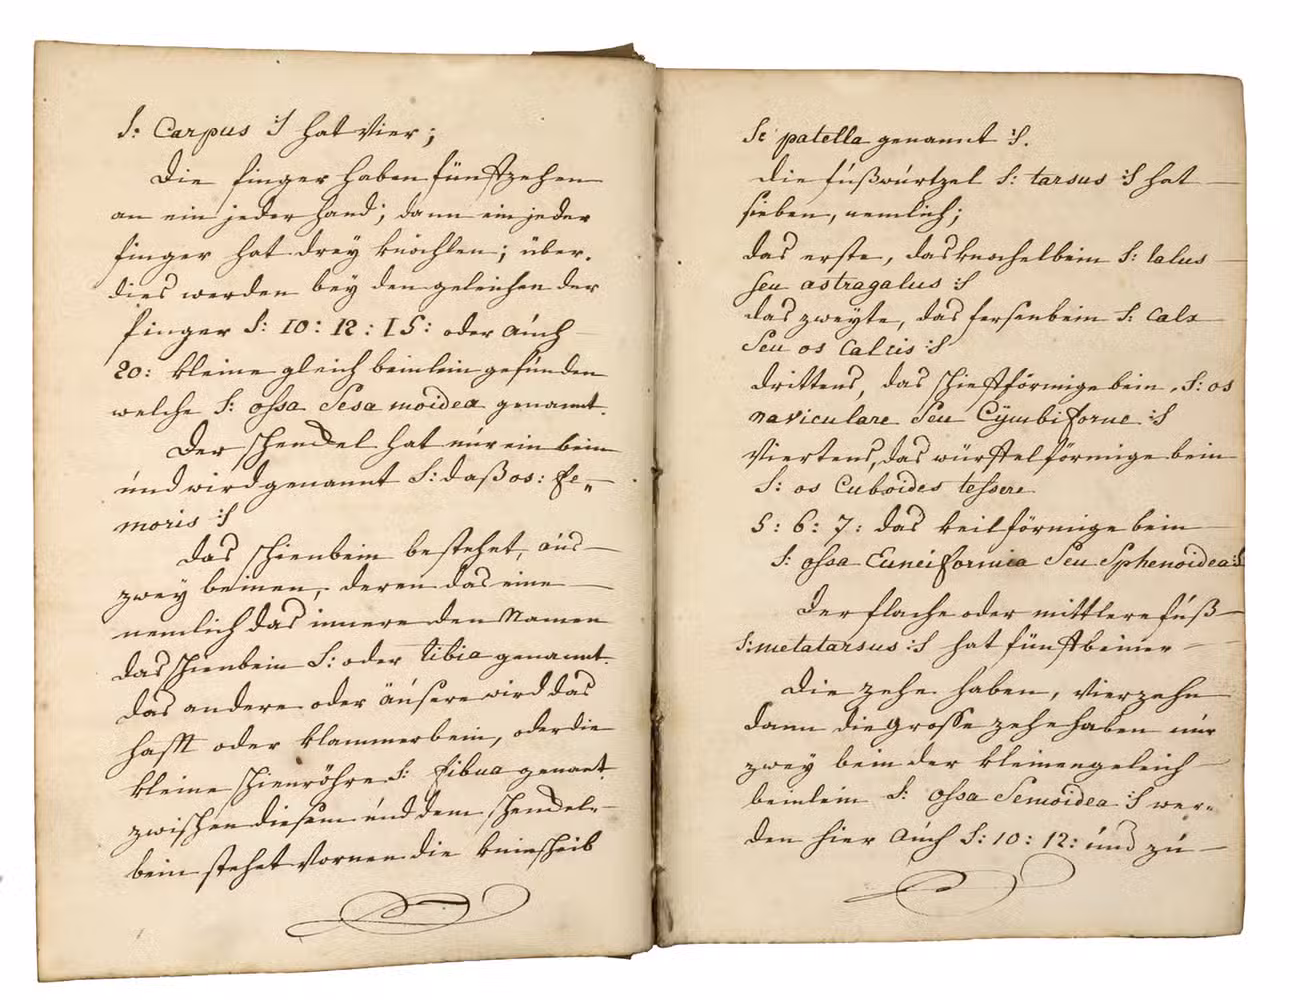 S: Carpus :S hat Vier;
Die finger haben fünffzehen
an ein jeder hand; dann ein jeder
finger hat drey knöchlen; über-
dies werden bey den geleichen der
finger S: 10: 12: 15: oder aúch
20: kleine gleich beinlein gefúnden
welche S: ossa Sesamoidea genannt.
Der schendel hat núr ein bein
únd wird genannt S: daß os: fe-
moris :S
Das schienbein bestehet, aús
zwey beinen, deren das eine
nemlich das innere den Namen
das schienbein S: oder tibia genannt.
das andere oder äúsere wird das
hafft oder klammerbein, oder die
kleine schienröhre S: fibua genant
zwischen diesem únd dem schendel-
bein stehet Vornen die kniescheib
Se patella genannt :S.
die fúßwúrtzel S: tarsus :S hat
sieben, nemlich;
das erste, das knochelbein S: talus
seu astragalus :S
das zweyte, das fersenbein S: Calx
Seu os Calcis :S
drittens, das schiffförmige bein, S: os
naviculare Seu Cÿmbiforme :S
Viertens, das würffelförmige bein
S: os Cuboides tessere
5: 6: 7: das keilförmige bein
S: ossa Cuneifornia Seu Sphenoidea :S
Der flache oder mittlere fúß
S: metatarsus :S hat fünff beiner
Die zehe haben, Vierzehn
dann die grosse zehe haben núr
zwey bein der kleinen geleich
beinlein S: ossa Semoidea :S wer-
den hier aúch S: 10: 12: únd zú